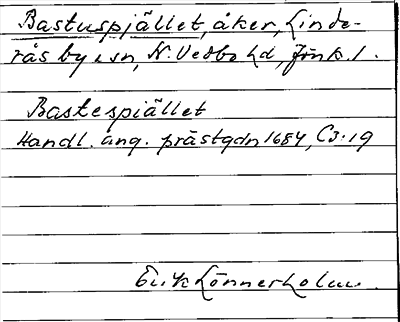 Bastuspjället, åker, Linde-
rås by o sn, N. Vedbo hd, Jönk. l.
Bastespiället
Handl. ang. prästgdn 1684, C3:19
Erik Lönnerholm.